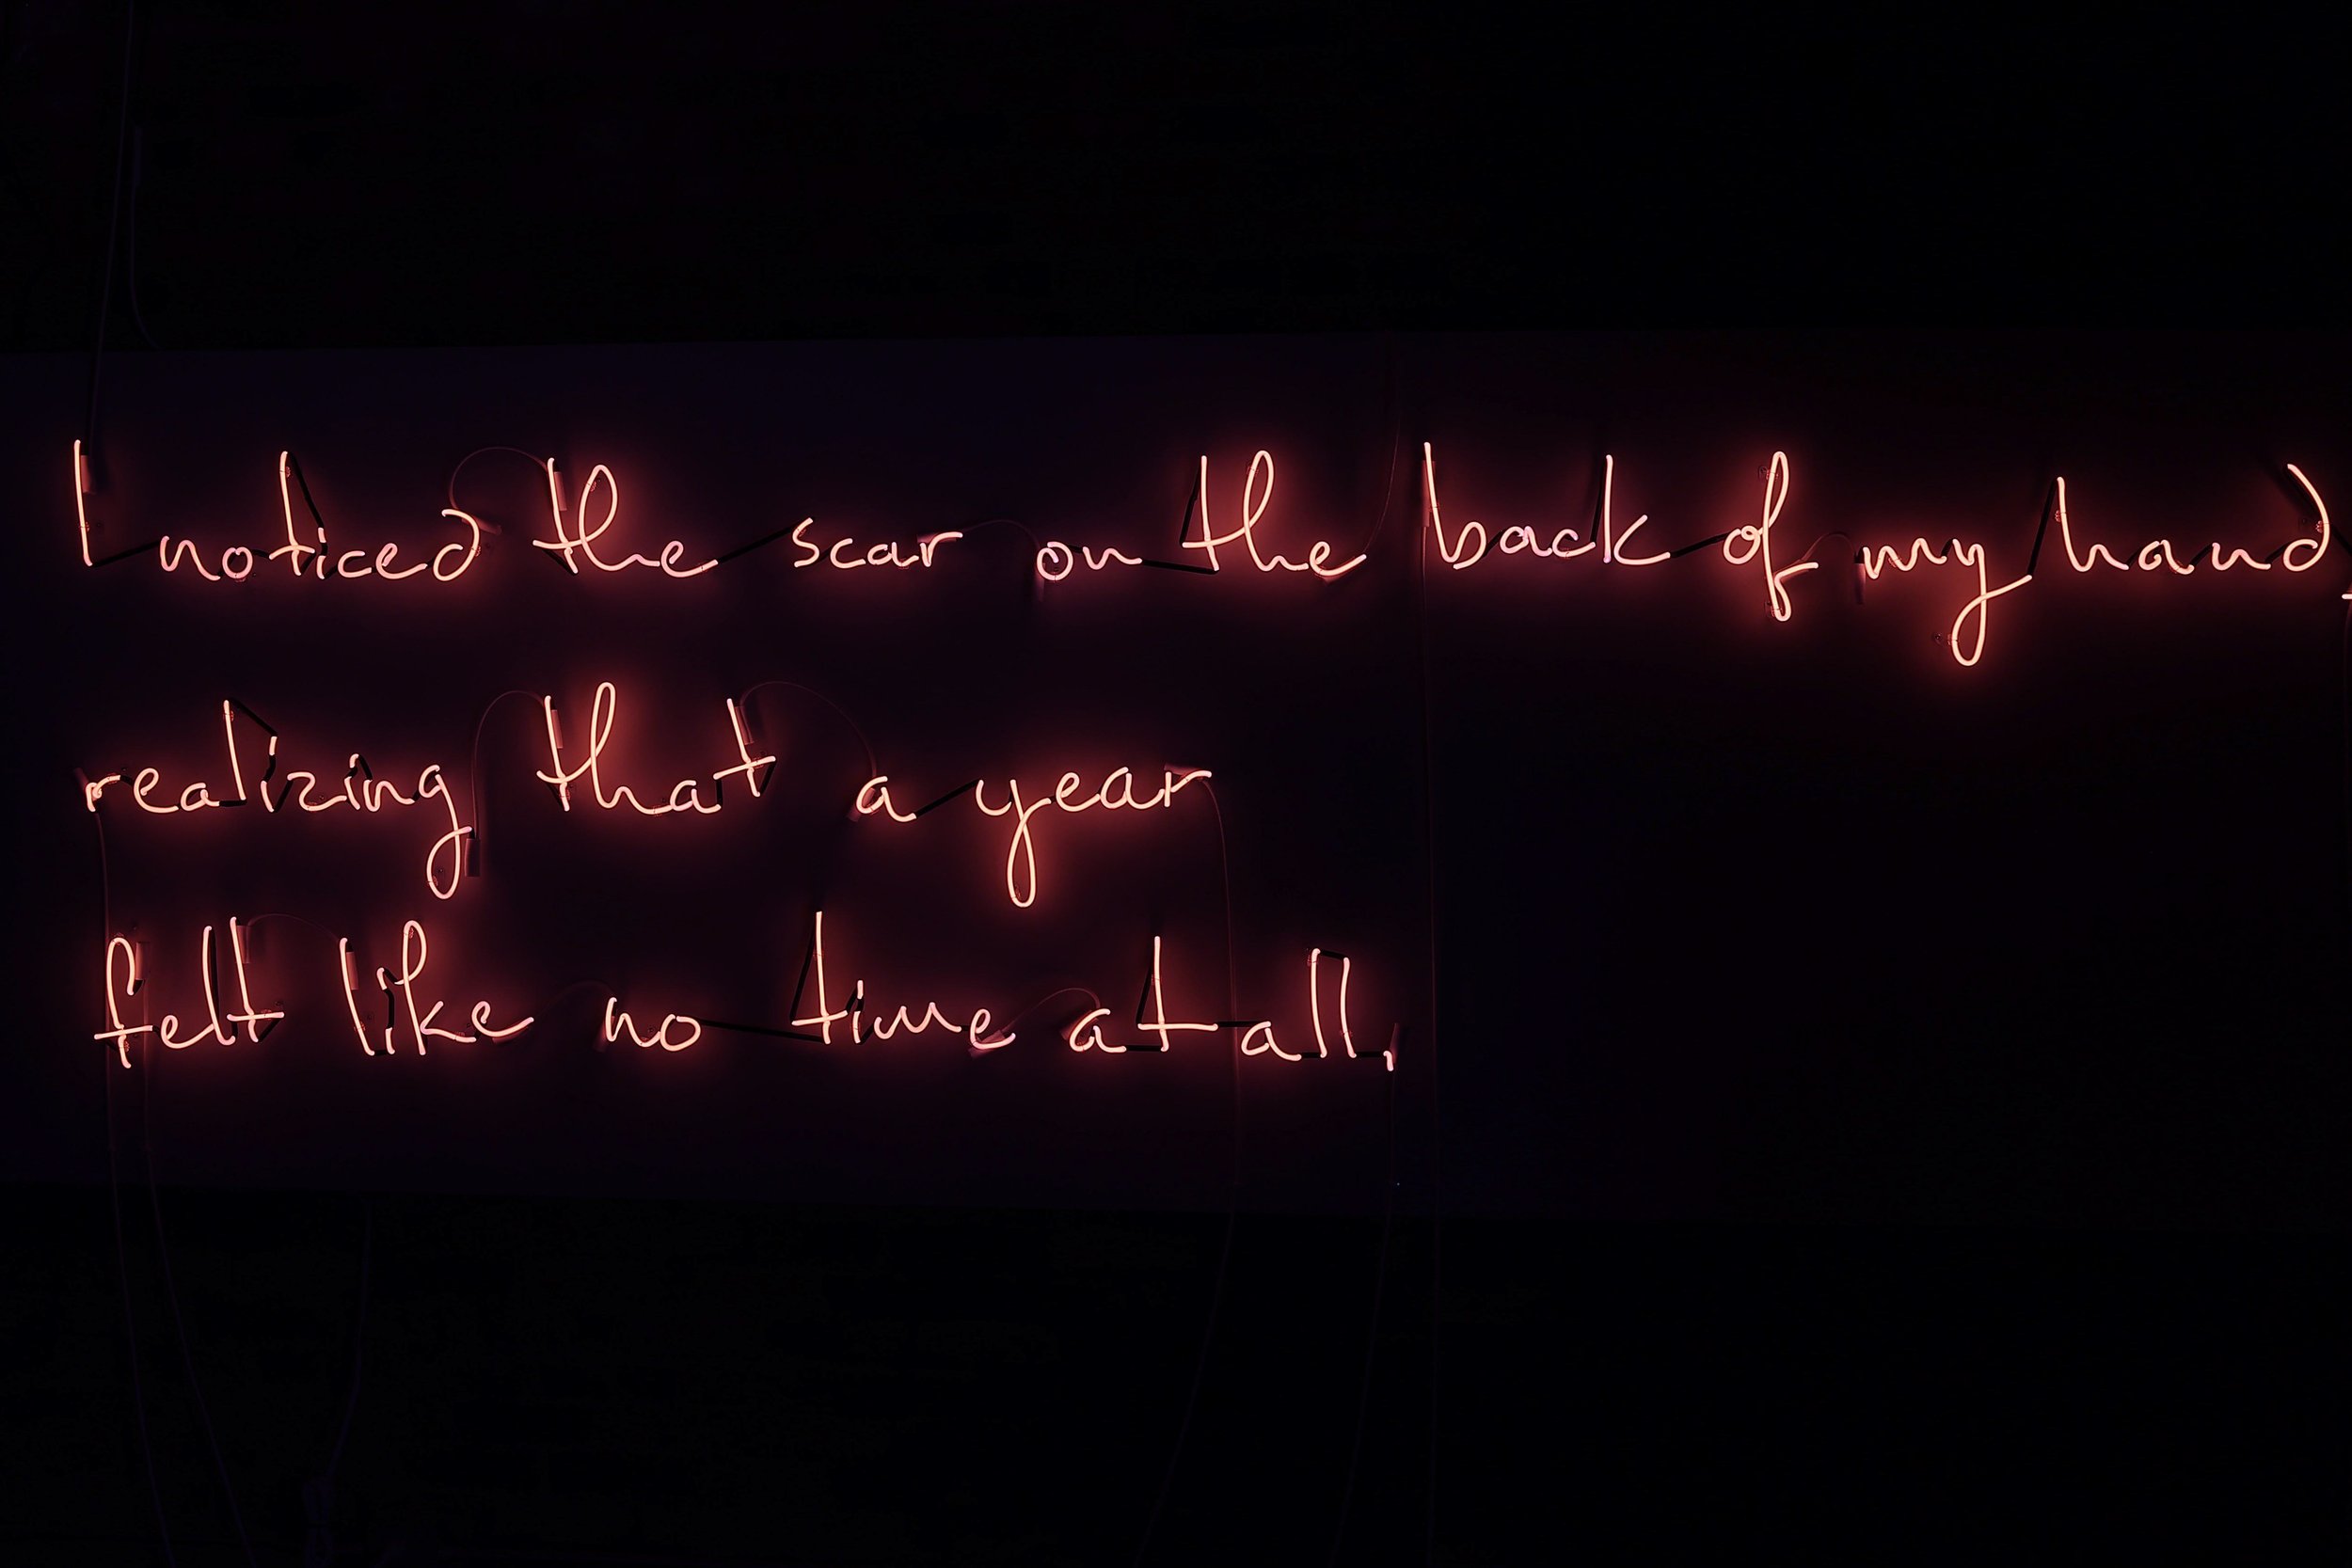 I noticed the scar on the back of my hand
realizing that a year
felt like no time at all,